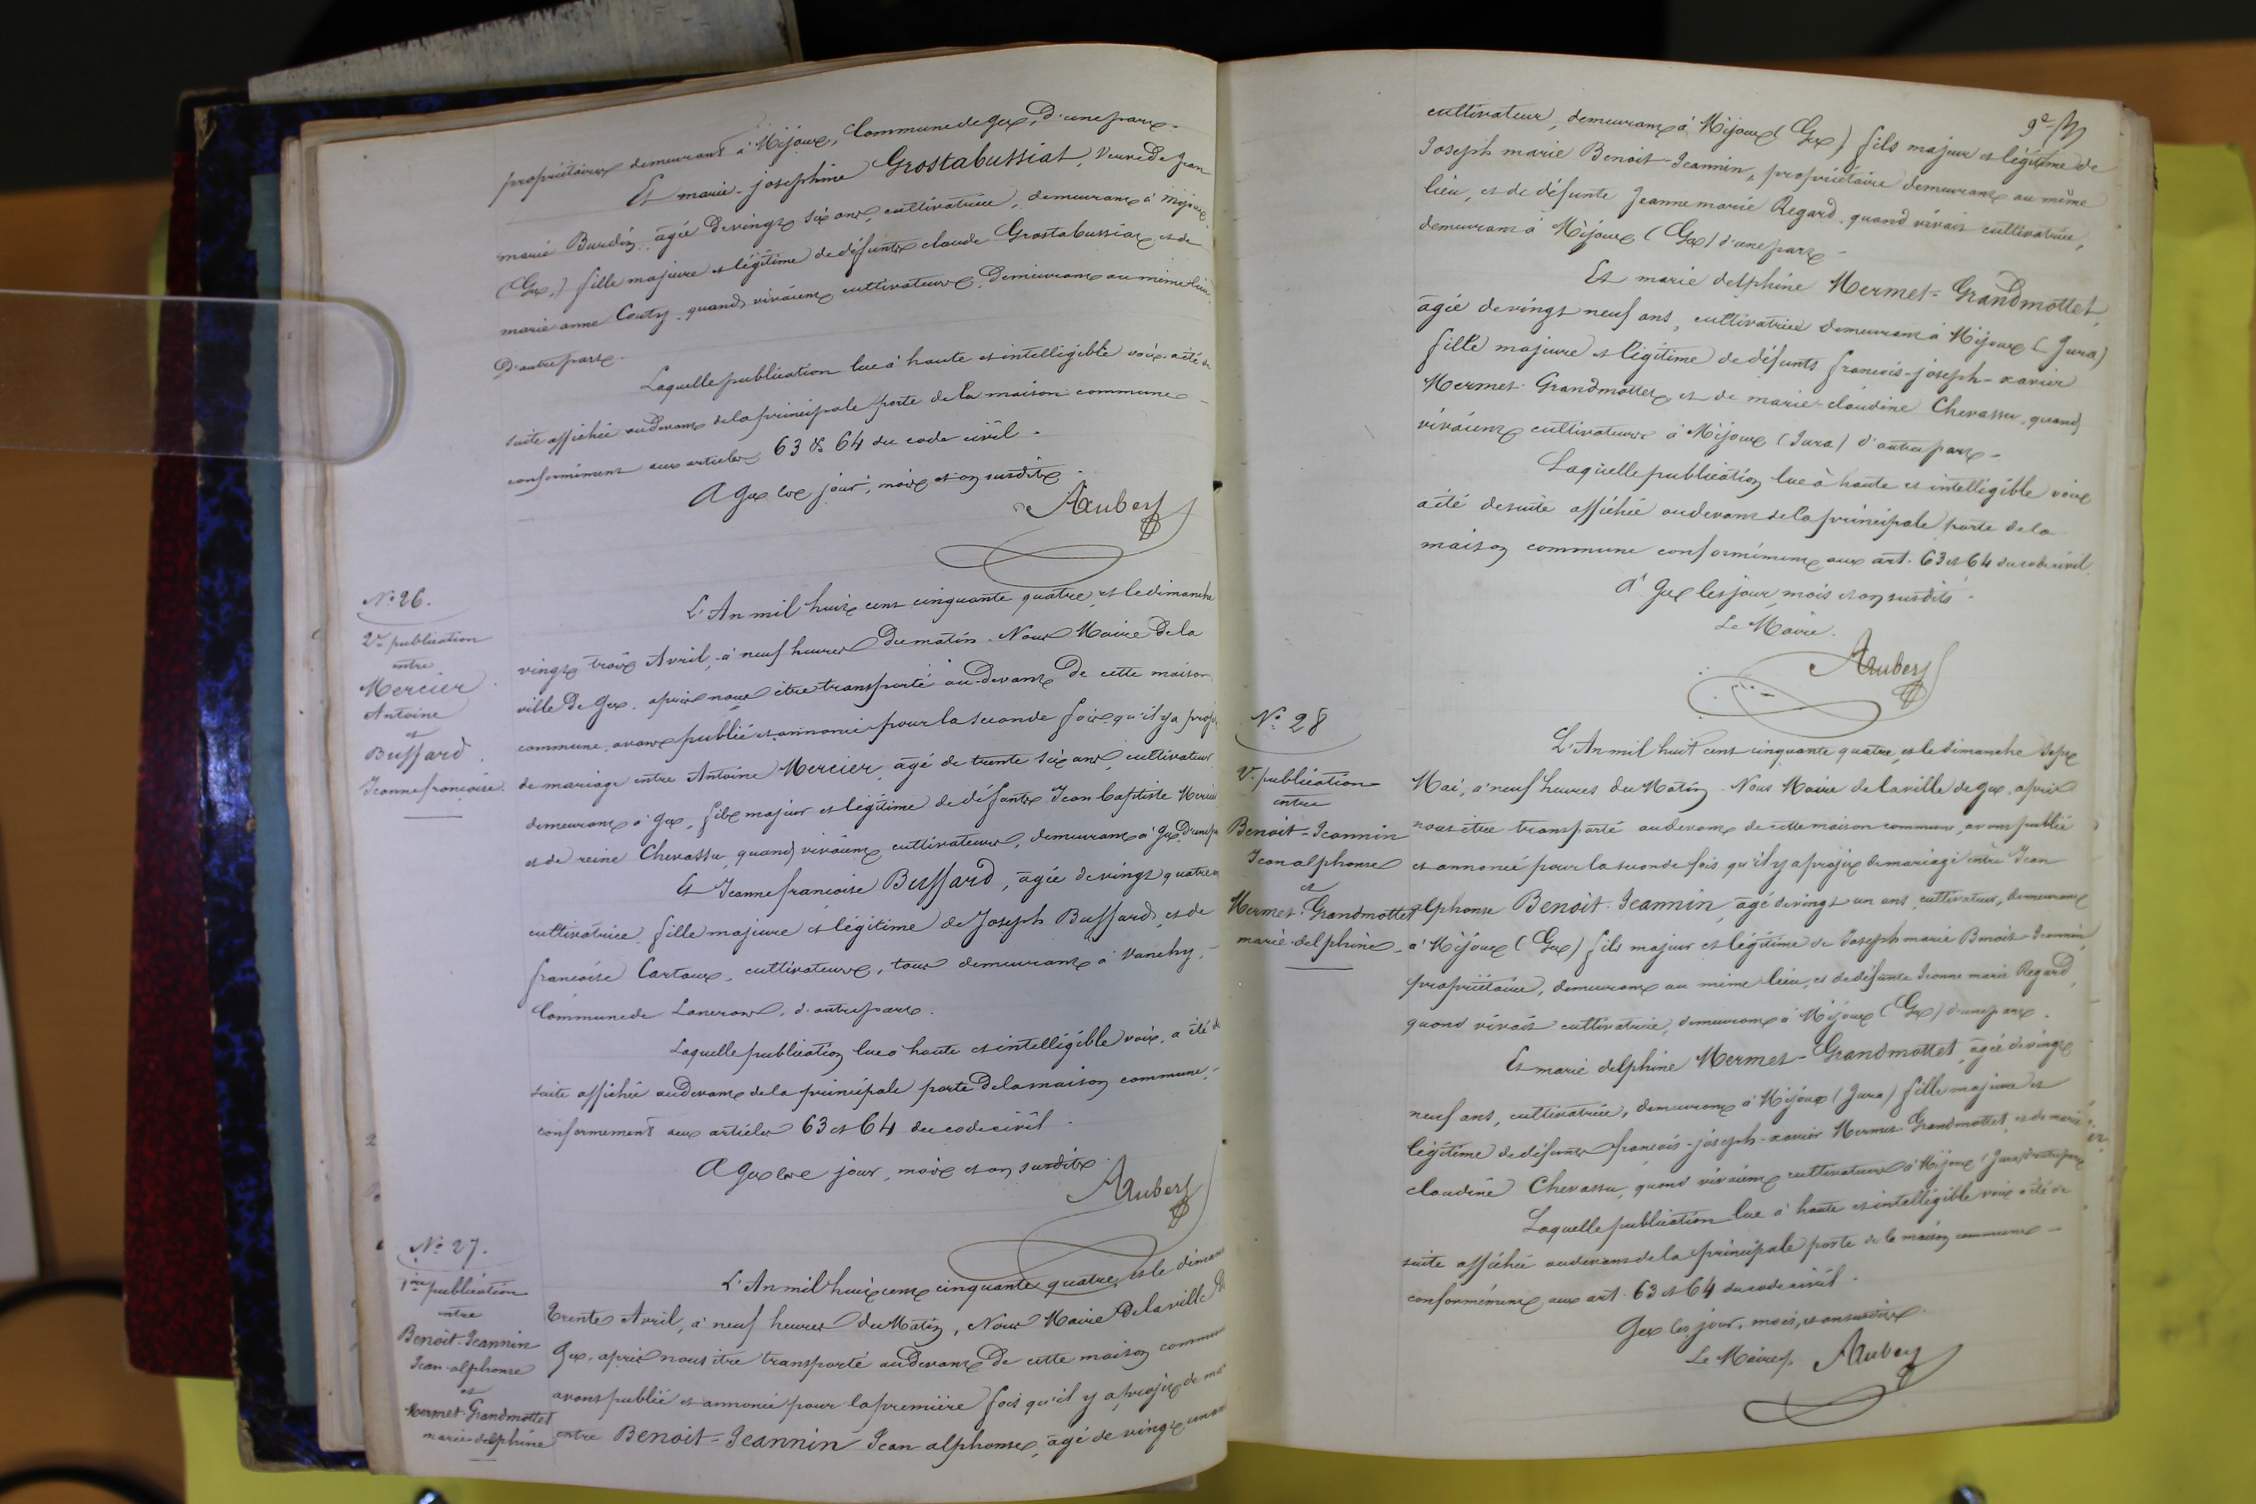 propriétaires demeurant à Mijoux, Commune de Gex, d'une part.
Et marie-josephine Grostabussiat, veuve de Jean
marie Burdin, agée de vingt six ans, cultivatrice, demeurant à Mijoux
(Gex) fille majeure et légitime de défunts claude Grostabussiat et de
marie anne Couty, quand vivaient cultivateurs, demeurant au même lieu,
D'autre part.
Laquelle publication lue à haute et intelligible voix, a été de
suite affichée au devant de la principale porte de la maison commune
conformément aux articles 63 & 64 du code civil.
A Gex les jour, mois et an susdits.
Aubert
No 26.
2e publication
entre
Mercier
Antoine
et
Buffard
Jeanne françoise.
L'An mil huit cent cinquante quatre, et le dimanche
vingt trois Avril, à neuf heures du matin. Nous Maire de la
ville de Gex, après nous être transporté au-devant de cette maison
commune, avons publié et annoncé pour la seconde fois qu'il y a projet
de mariage entre Antoine Mercier, agé de trente six ans, cultivateur
demeurant à Gex, fils majeur et légitime de défunts Jean baptiste Mercier
et de reine Chevassu, quand vivaient cultivateurs, demeurant à Gex, D'une part
Et Jeanne francoise Buffard, agée de vingt quatre ans
cultivatrice, fille majeure et légitime de Joseph Buffard, et de
francoise Cartaux, cultivateurs, tous demeurant à Vanchy,
Commune de Lancrans, d'autre part.
Laquelle publication lue à haute et intelligible voix, a été de
suite affichée au devant de la principale porte de la maison commune,
conformement aux articles 63 et 64 du code civil.
A Gex les jour, mois et an susdits.
Aubert
No 27.
1ère publication
entre
Benoit-Jeannin
Jean-alphonse
et
Mermet-Grandmottet
marie-delphine
L'An mil huit cent cinquante quatre, et le dimanche
Trente Avril, à neuf heures du Matin, Nous Maire de la ville de
Gex, après nous être transporté au devant de cette maison commune
avons publié et annoncé pour la première fois qu'il y a projet de ma
entre Benoit-Jeannin Jean alphonse, agé de vingt un ans
cultivateur, demeurant à Mijoux (Gex) fils majeur et légitime de
Joseph marie Benoit-Jeannin, propriétaire demeurant au même
lieu, et de défunte Jeanne marie Regard, quand vivait cultivatrice,
demeurant à Mijoux (Gex) d'une part.
Et marie delphine Mermet-Grandmottet,
agée de vingt neuf ans, cultivatrice demeurant à Mijoux (Jura)
fille majeure et légitime de défunts francois-joseph-xavier
Mermet-Grandmottet et de marie-claudine Chevassu, quand
vivaient cultivateurs à Mijoux (Jura) d'autre part.
Laquelle publication lue à haute et intelligible voix
a été de suite affichée au devant de la principale porte de la
maison commune conformément aux art. 63 et 64 du code civil.
A Gex les jour, mois et an susdits.
Le Maire.
Aubert
No 28
2e publication
entre
Benoit-Jeannin
Jean alphonse
et
Mermet-Grandmottet
marie-delphine
L'An mil huit cent cinquante quatre, et le dimanche sept
Mai, à neuf heures du Matin. Nous Maire de la ville de Gex, après
nous être transporté au devant de cette maison commune, avons publié
et annoncé pour la seconde fois qu'il y a projet de mariage entre Jean
alphonse Benoit-Jeannin, agé de vingt un ans, cultivateur, demeurant
à Mijoux (Gex) fils majeur et légitime de Joseph marie Benoit-Jeannin,
propriétaire, demeurant au même lieu, et de défunte Jeanne marie Regard,
quand vivait cultivatrice, demeurant à Mijoux (Gex) d'une part.
Et marie delphine Mermet-Grandmottet, agée de vingt
neuf ans, cultivatrice, demeurant à Mijoux (Jura) fille majeure et
légitime de défunts françois-joseph-xavier Mermet-Grandmottet, et de marie
claudine Chevassu, quand vivaient cultivateurs à Mijoux (Jura) d'autre part
Laquelle publication lue à haute et intelligible voix a été de
suite affichée au devant de la principale porte de la maison commune
conformément aux art. 63 et 64 du code civil.
Gex les jour, mois, et an susdits.
Le Maire. Aubert